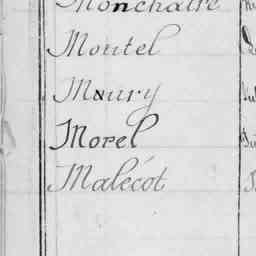 Monchatre
Montel
Maury
Morel
Malécot